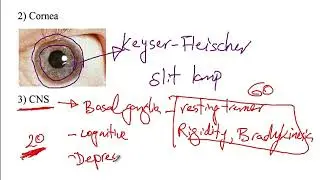 2) Cornea
Keyser-Fleischer
slit lamp
60
3) CNS → Basal ganglia - resting tremor
Rigidity, Bradykinesia
- Cognitive
20
- Depres